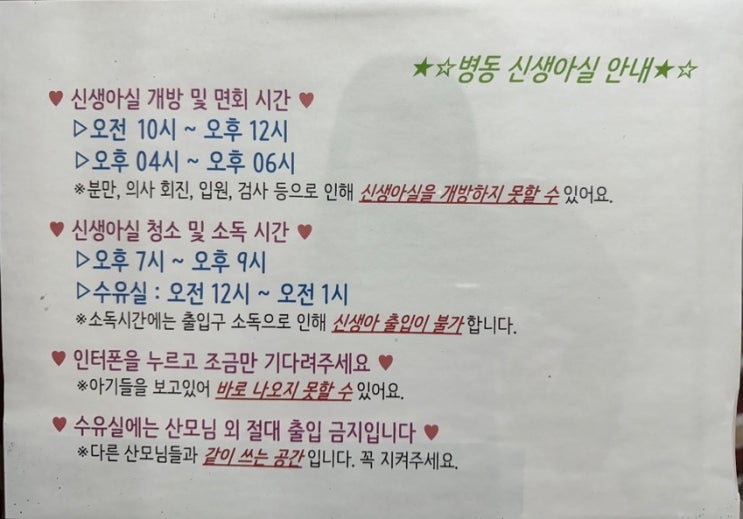 ★☆병동 신생아실 안내★☆
♥ 신생아실 개방 및 면회 시간 ♥
▷오전 10시 ~ 오후 12시
▷오후 04시 ~ 오후 06시
※분만, 의사 회진, 입원, 검사 등으로 인해 신생아실을 개방하지 못할 수 있어요.
♥ 신생아실 청소 및 소독 시간 ♥
▷오후 7시 ~ 오후 9시
▷수유실 : 오전 12시 ~ 오전 1시
※소독시간에는 출입구 소독으로 인해 신생아 출입이 불가합니다.
♥ 인터폰을 누르고 조금만 기다려주세요 ♥
※아기들을 보고있어 바로 나오지 못할 수 있어요.
♥ 수유실에는 산모님 외 절대 출입 금지입니다 ♥
※다른 산모님들과 같이 쓰는 공간입니다. 꼭 지켜주세요.